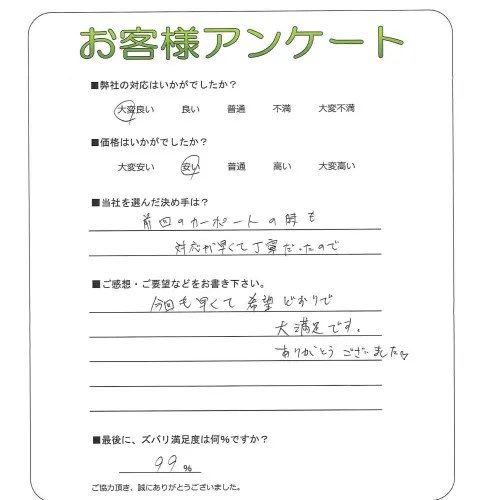 お客様アンケート
■弊社の対応はいかがでしたか？
大変良い 良い 普通 不満 大変不満
■価格はいかがでしたか？
大変安い 安い 普通 高い 大変高い
■当社を選んだ決め手は？
前回のカーポートの時も
対応が早くて丁寧だったので
■ご感想・ご要望などをお書き下さい。
今回も早くて希望どおりで
大満足です。
ありがとうございました♡
■最後に、ズバリ満足度は何％ですか？
99 %
ご協力頂き、誠にありがとうございました。